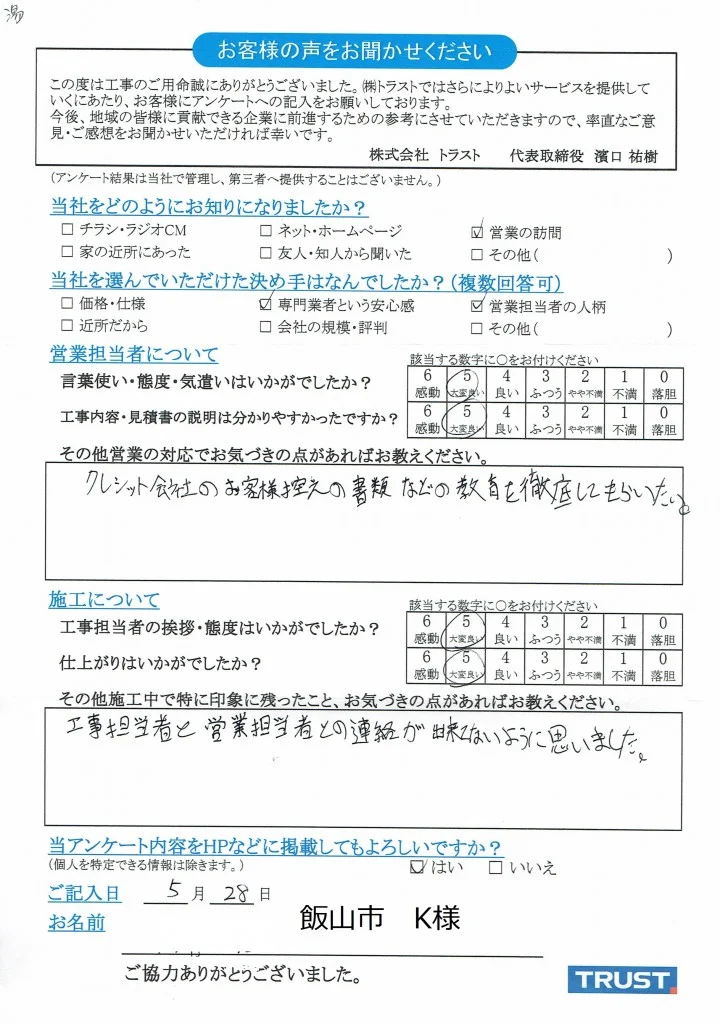 湯
お客様の声をお聞かせください
この度は工事のご用命誠にありがとうございました。㈱トラストではさらによりよいサービスを提供して
いくにあたり、お客様にアンケートへの記入をお願いしております。
今後、地域の皆様に貢献できる企業に前進するための参考にさせていただきますので、率直なご意
見・ご感想をお聞かせいただければ幸いです。
株式会社 トラスト 代表取締役 濱口 祐樹
(アンケート結果は当社で管理し、第三者へ提供することはございません。)
当社をどのようにお知りになりましたか?
□ チラシ・ラジオCM □ ネット・ホームページ ☑ 営業の訪問
□ 家の近所にあった □ 友人・知人から聞いた □ その他( )
当社を選んでいただけた決め手はなんでしたか?(複数回答可)
□ 価格・仕様 ☑ 専門業者という安心感 ☑ 営業担当者の人柄
□ 近所だから □ 会社の規模・評判 □ その他( )
営業担当者について 該当する数字に○をお付けください
言葉使い・態度・気遣いはいかがでしたか? 6 5 4 3 2 1 0
感動 大変良い 良い ふつう やや不満 不満 落胆
工事内容・見積書の説明は分かりやすかったですか? 6 5 4 3 2 1 0
感動 大変良い 良い ふつう やや不満 不満 落胆
その他営業の対応でお気づきの点があればお教えください。
クレジット会社のお客様控えの書類などの教育を徹底してもらいたい。
施工について 該当する数字に○をお付けください
工事担当者の挨拶・態度はいかがでしたか? 6 5 4 3 2 1 0
感動 大変良い 良い ふつう やや不満 不満 落胆
仕上がりはいかがでしたか? 6 5 4 3 2 1 0
感動 大変良い 良い ふつう やや不満 不満 落胆
その他施工中で特に印象に残ったこと、お気づきの点があればお教えください。
工事担当者と営業担当者との連絡が出来てないように思いました。
当アンケート内容をHPなどに掲載してもよろしいですか?
(個人を特定できる情報は除きます。) ☑ はい □ いいえ
ご記入日 5 月 28 日
お名前 飯山市 K様
ご協力ありがとうございました。
TRUST